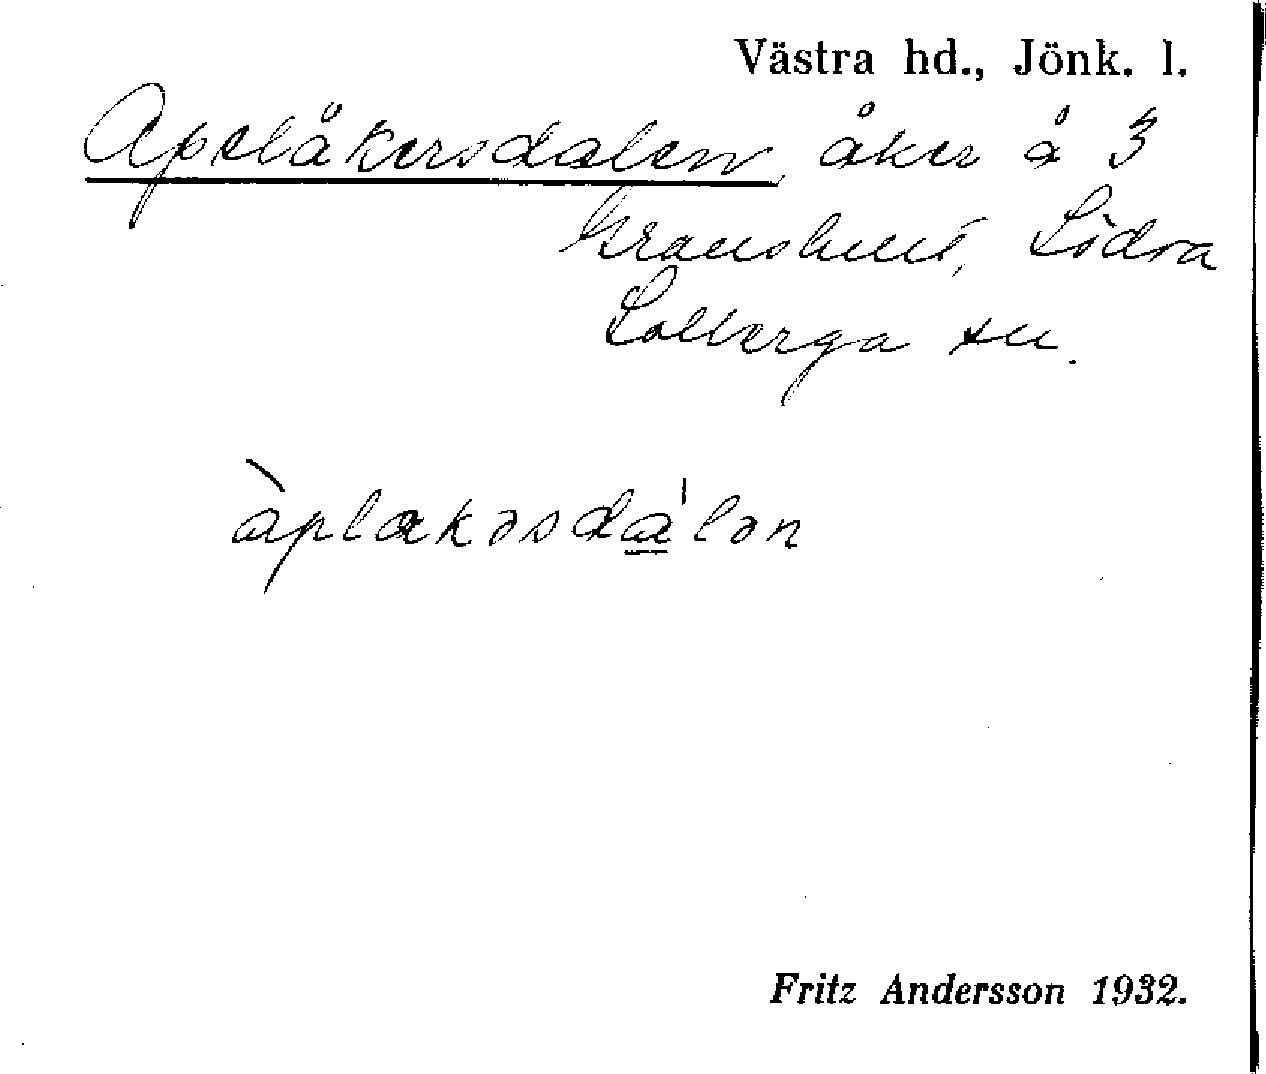 Västra hd., Jönk. l.
Apelåkersdalen, åker å 3
Södra
Solberga sn.
àplakəsdàlən
Fritz Andersson 1932.